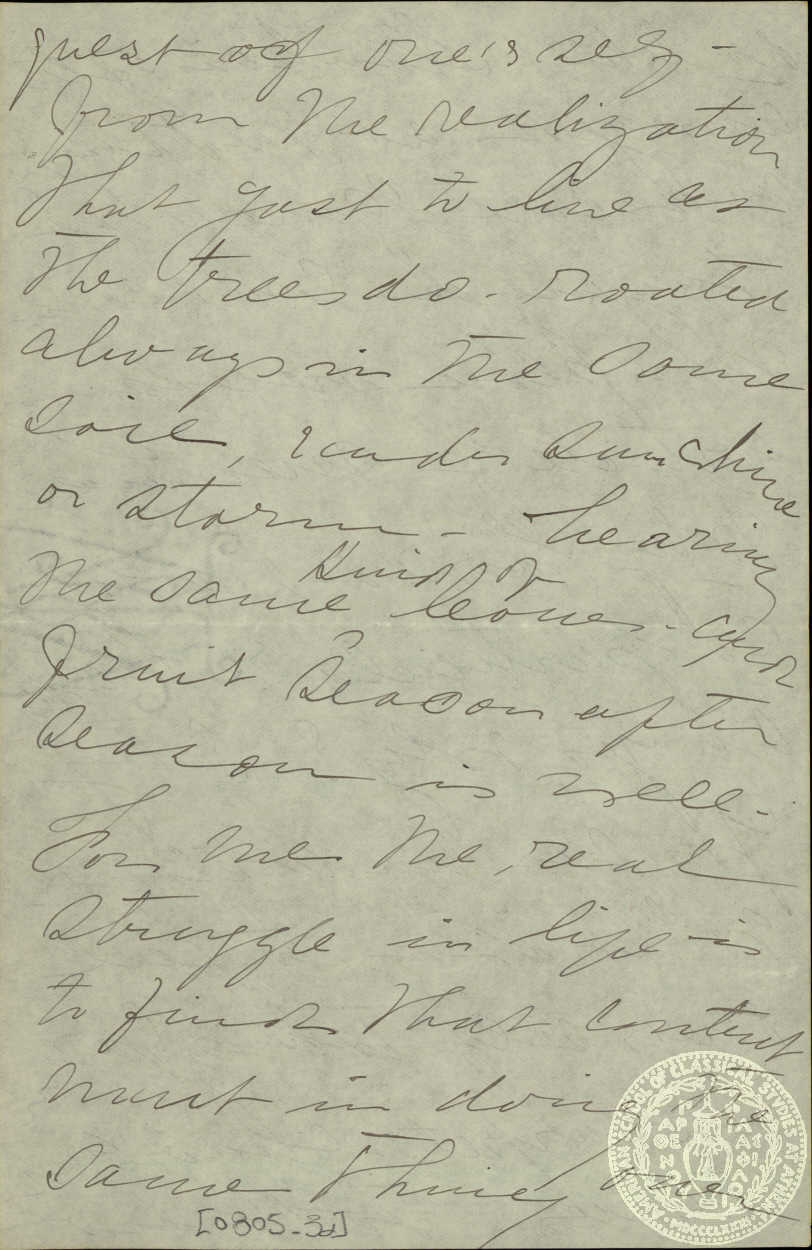 quest of one's self -
from the realization
that just to live as
the trees do - rooted
always in the same
soil, under sunshine
or storm - bearing
the same kind of leaves - and
fruit season after
season is well -
For me the real
struggle in life is
to find that content
ment in doing the
same thing over
[0805_3d]
AMERICAN SCHOOL OF CLASSICAL STUDIES AT ATHENS
MDCCCLXXXI
ΠΑΡΘΕΝΟΥ